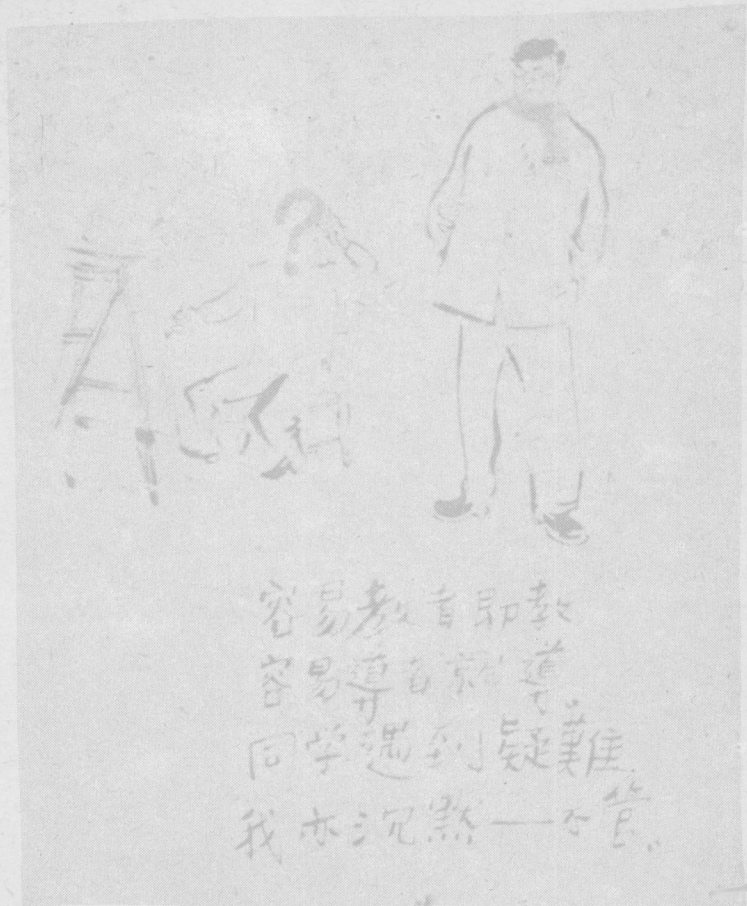 ?
容易教者即教
容易導者就導。
同学遇到疑難
我亦沉默——不管。